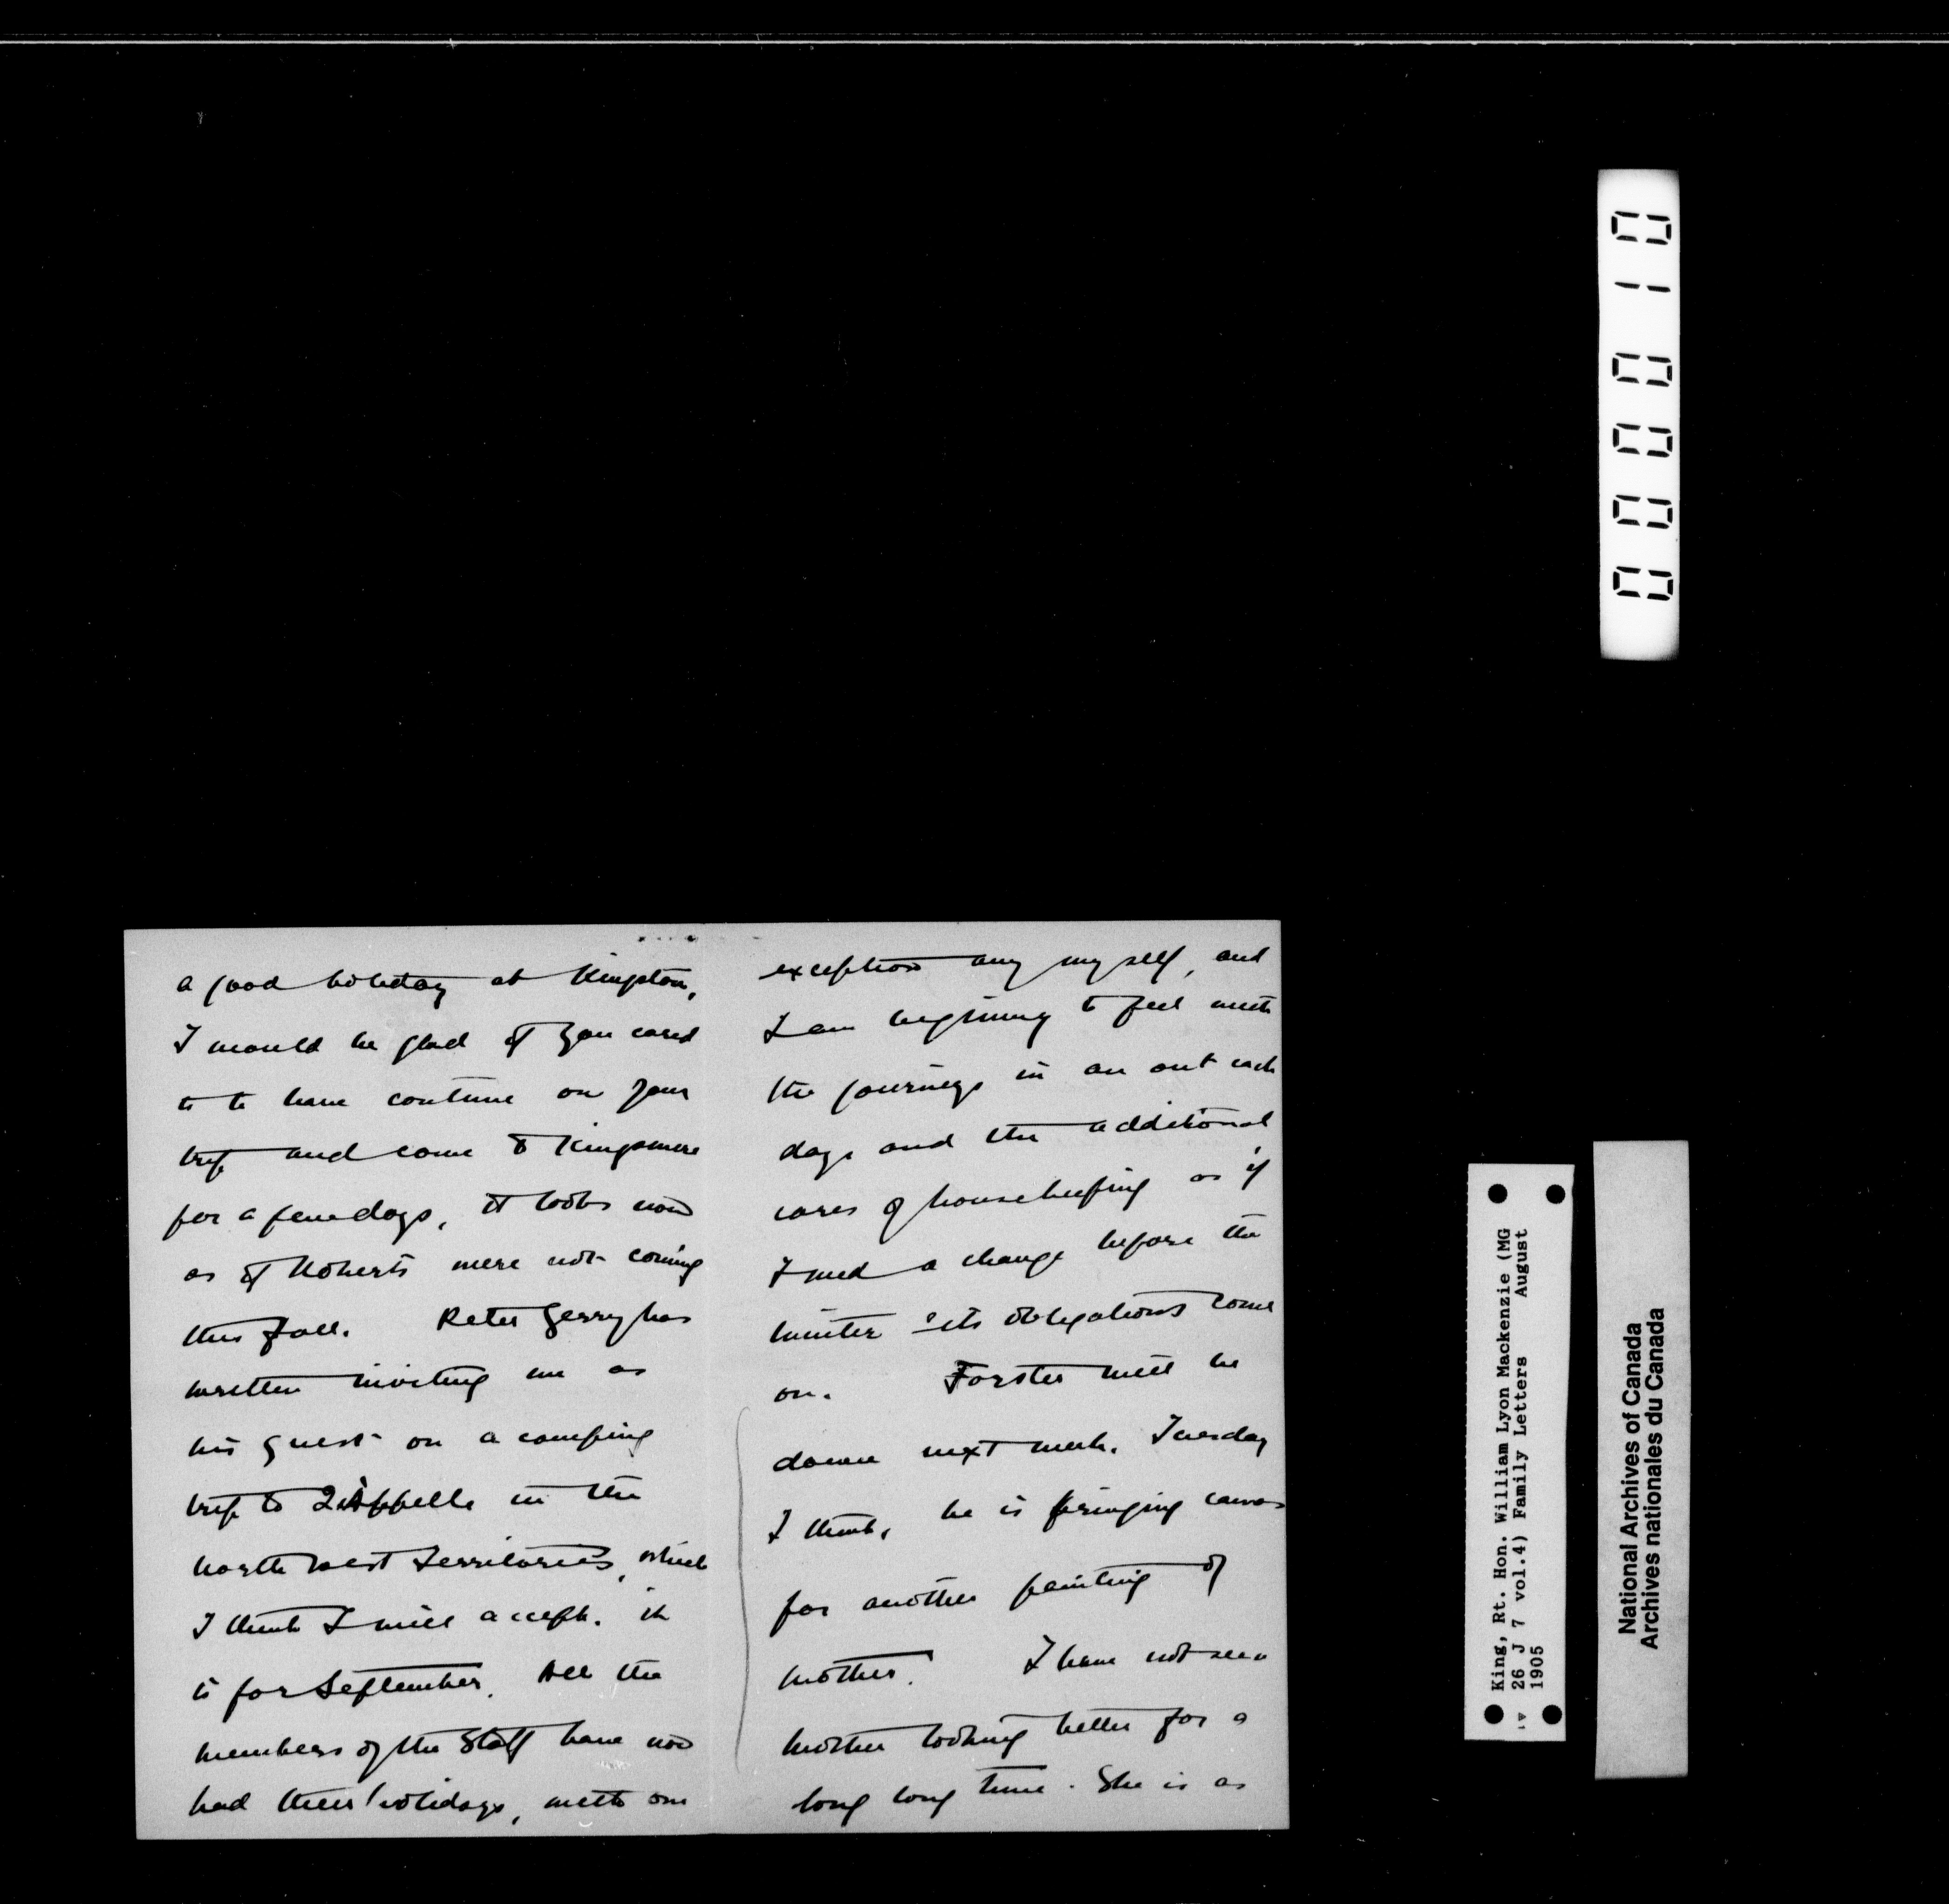 a good holiday at Kingston,
I would be glad if you cared
to to have continue on your
trip and come to Kingsmere
for a few days, it looks now
as if Roberts were not coming
this fall. Peter Gerry has
written inviting me as
his guest on a camping
trip to Qu'Appelle in the
North West Territories, which
I think I will accept. it
is for September. All the
members of the Staff have now
had their holidays, with one
exception any myself, and
I am beginning to feel with
the journeys in an out each
day and the additional
cares of housekeeping as if
I need a change before the
winter & its obligations come
on. Forster will be
down next week. Tuesday
I think, he is bringing canvas
for another painting of
mother. I have not seen
mother looking better for a
long long time. She is as
000010
King, Rt. Hon. William Lyon Mackenzie (MG
26 J 7 vol.4) Family Letters August
1905
National Archives of Canada
Archives nationales du Canada